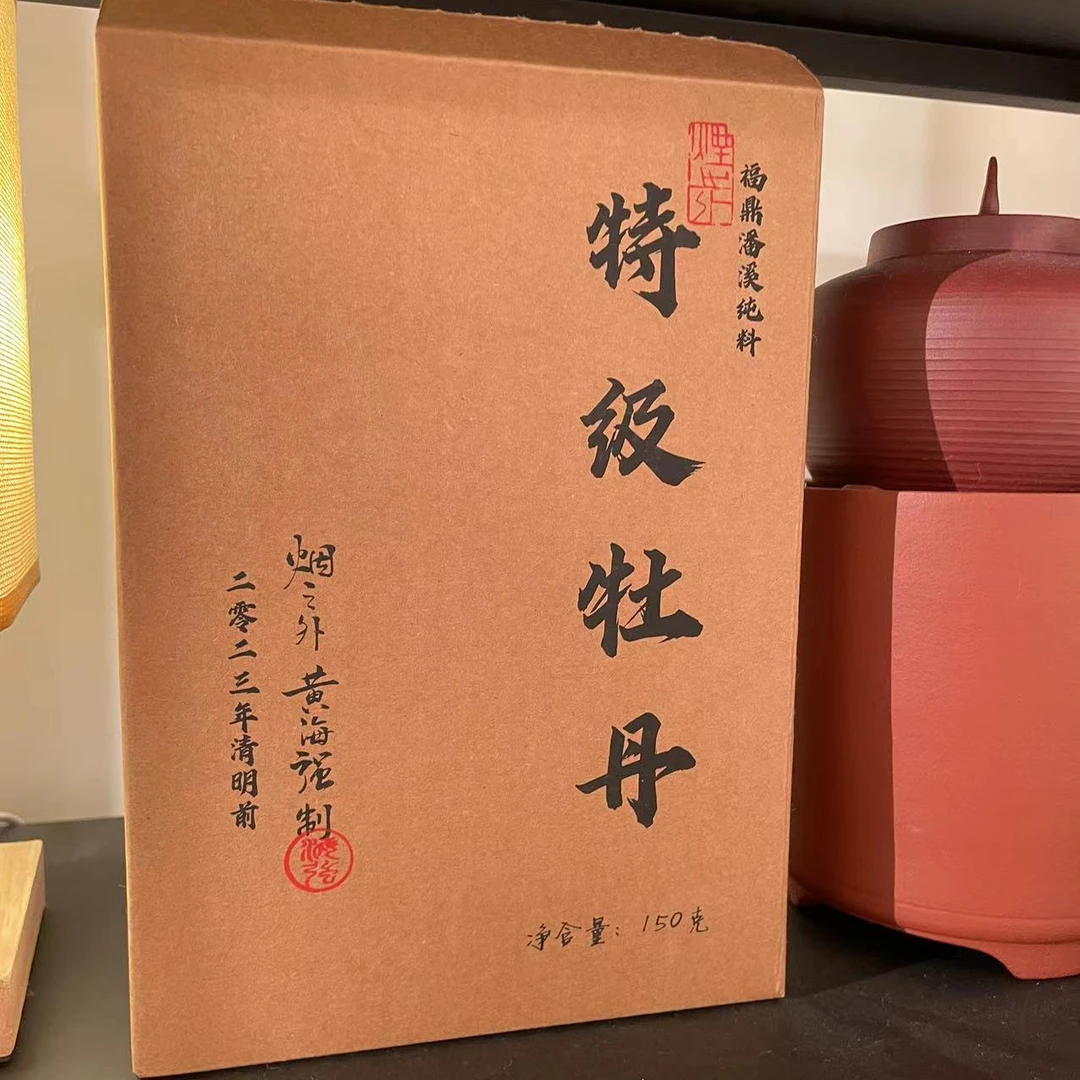 福鼎潘溪纯料
特级牡丹
烟之外 黄海强制
二零二三年清明前
净含量：150克